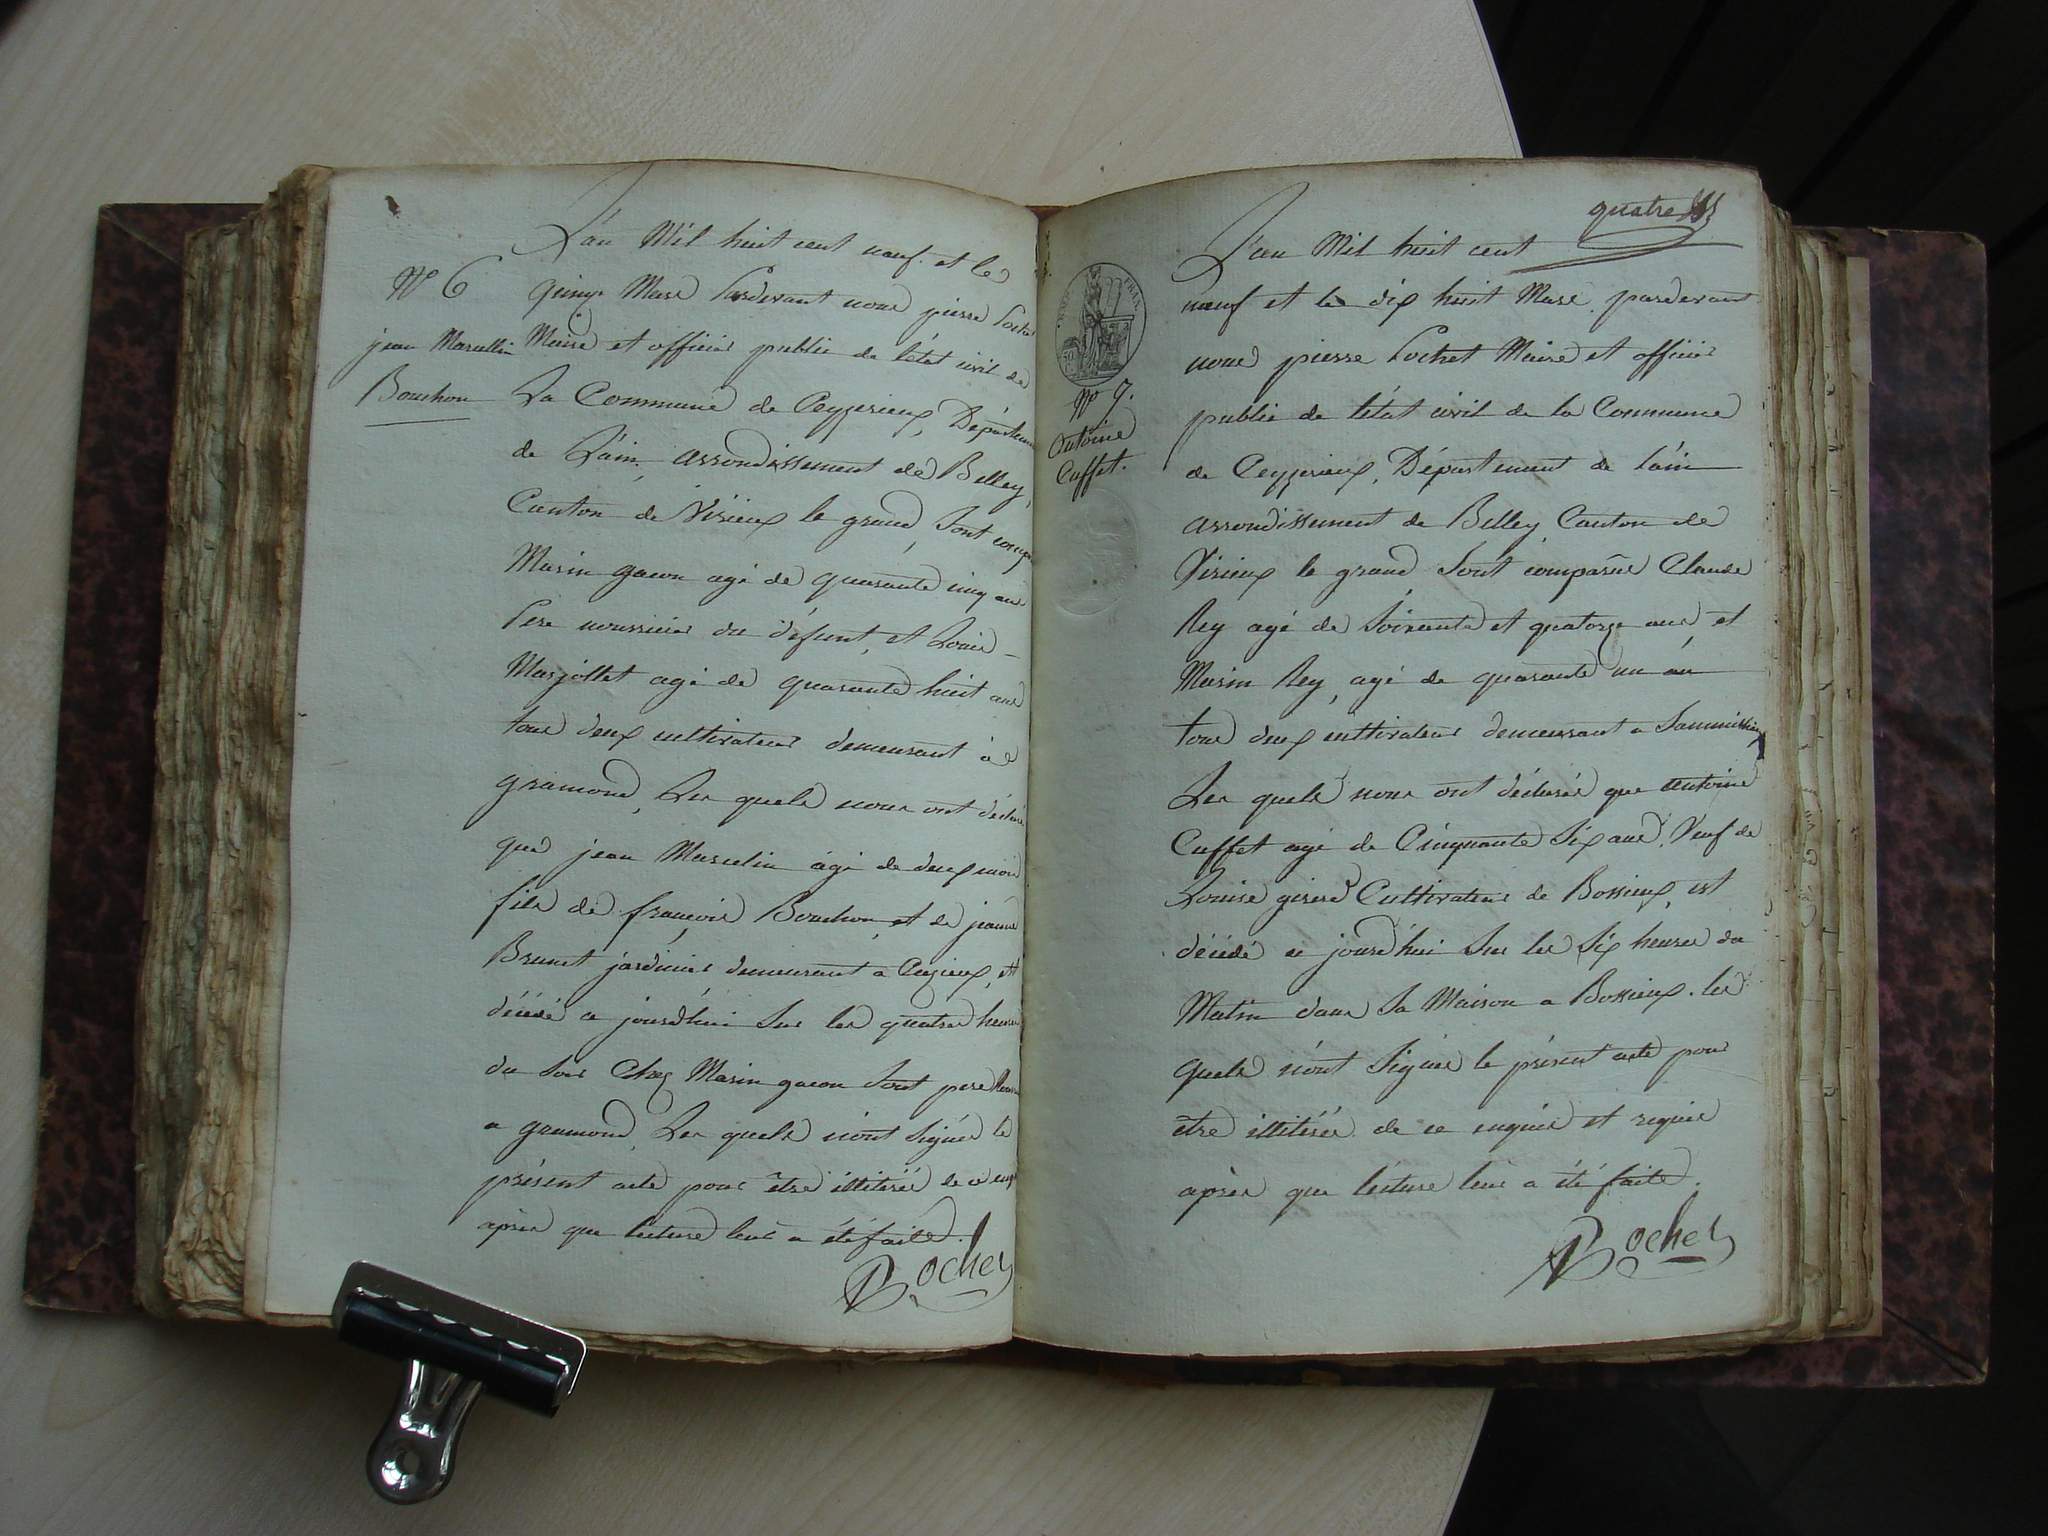 L'an Mil huit cent neuf et le
N° 6
quinze Mars Pardevant nous pierre
jean Marcellin
Maire et officier public de l'état civil de
Bouchon
La Commune de Ceyzerieux, Département
de L'ain, arrondissement de Belley,
Canton de Virieux le grand, Sont
Marin gacon agé de quarante cinq ans
Pere nourricier du défunt, et Louis
Marjollet agé de quarante huit ans
tous deux cultivateurs demeurant à
gramond, Les quels nous ont déclaré
que jean Marcelin agé de deux mois
fils de françois Bouchon, et de jeanne
Brunet jardinier demeurant a Cuzieux, est
décédé ce jourd'hui Sur les quatre heures
du Soir Chez Marin gacon Sont pere
a gramond, Les quels n'ont Signés le
présent acte pour être illitérés de ce
après que lecture leur a été faite.
Rochet
quatre
L'an Mil huit cent
neuf et le dix huit Mars, pardevant
nous pierre Rochet Maire et officier
public de l'état civil de la Commune
N° 7.
Antoine
Cuffet.
de Ceyzerieux, Département de L'ain
arrondissement de Belley, Canton de
Virieux le grand Sont comparus Claude
Rey agé de Soixante et quatorze ans, et
Marin Rey, agé de quarante un an
tous deux cultivateurs demeurant a
Les quels nous ont déclarés que Antoine
Cuffet agé de Cinquante Six ans, Veuf de
Louise Cultivateur de Bossieux, est
décédé ce jourd'hui Sur les Six heures du
Matin dans Sa Maison a Bossieux. les
quels n'ont Signés le présent acte pour
être illitérés de ce enquis et requis
après que lecture leur a été faite.
Rochet